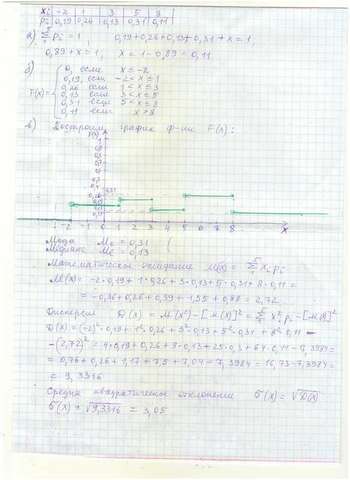 xi -2 1 3 5 8
pi 0,19 0,26 0,13 0,31 0,11
а) Σ pi = 1, 0,19+0,26+0,13+0,31+x=1,
0,89+x=1, x=1-0,89=0,11
б) 0, если x≤-2
0,19, если -2<x≤1
F(x)= 0,26 если 1<x≤3
0,13 если 3<x≤5
0,31 если 5<x≤8
0,11 если x>8
в) Построим график ф-ии F(x):
Мода Mo = 0,31
Медиана Me = 0,13
Математическое ожидание M(x) = Σ xi pi
M(x) = -2·0,19+1·0,26+3·0,13+5·0,31+8·0,11=
= -0,36+0,26+0,39+1,55+0,88=2,72
Дисперсия D(x) = M(x²)-[M(x)]² = Σ xi² pi -[M(x)]²
D(x)=(-2)²·0,19+1²·0,26+3²·0,13+5²·0,31+8²·0,11-
-(2,72)²=4·0,19+0,26+9·0,13+25·0,31+64·0,11-7,3984=
=0,76+0,26+1,17+7,5+7,04-7,3984=16,73-7,3984=
= 9,3316
Средне квадратическое отклонение σ(x)=√D(x)
σ(x)=√9,3316 = 3,05